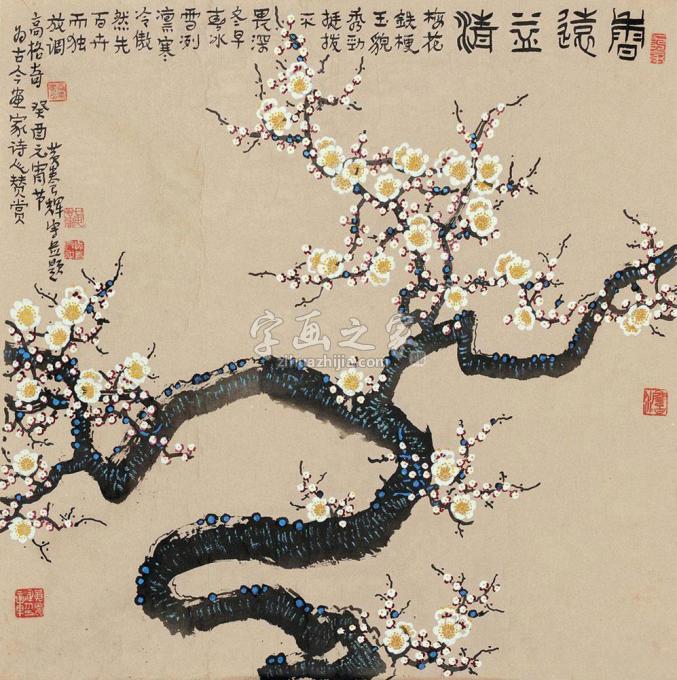 香遠益清
梅花
鉄梗
玉貌
秀勁
挺拔
不
畏深
冬早
春冰
雪冽
凛寒
冷傲
然先
百卉
而独
放调
高格奇
为古今画家诗人赞赏
癸酉元宵节
辉宇并题
字画之家
zihuazhijia.com